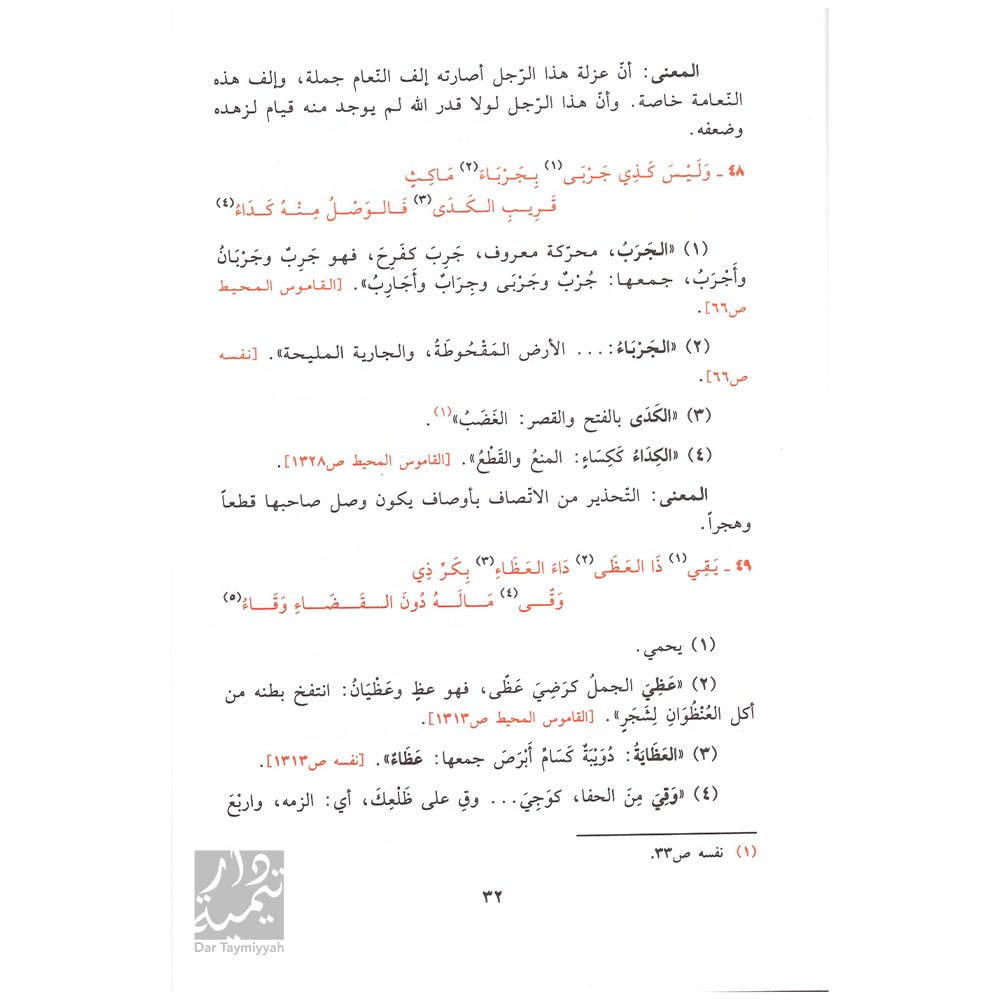 المعنى: أنّ عزلة هذا الرّجل أصارته إلف النّعام جملة، وإلف هذه
النّعامة خاصة. وأنّ هذا الرّجل لولا قدر الله لم يوجد منه قيام لزهده
وضعفه.
٤٨ ـ وَلَيْسَ كَذِي جَرْبَى(١) بِجَرْبَاءَ(٢) مَاكِثٍ
قَرِيبِ الكَدَى(٣) فَالوَصْلُ مِنْهُ كَدَاءُ(٤)
(١) «الجَرَبُ، محرّكة معروف، جَرِبَ كفَرِحَ، فهو جَرِبٌ وجَرْبَانُ
وأَجْرَبُ، جمعها: جُرْبٌ وجَرْبَى وجِرَابٌ وأَجَارِبُ». [القاموس المحيط
ص٦٦].
(٢) «الجَرْبَاءُ: ... الأرض المَقْحُوطَةُ، والجارية المليحة». [نفسه
ص٦٦].
(٣) «الكَدَى بالفتح والقصر: الغَضَبُ»(١).
(٤) «الكِدَاءُ كَكِسَاءٍ: المنعُ والقَطْعُ». [القاموس المحيط ص١٣٢٨].
المعنى: التّحذير من الاتّصاف بأوصاف يكون وصل صاحبها قطعاً
وهجراً.
٤٩ ـ يَقِي(١) ذَا العَظَى(٢) دَاءَ العَظَاءِ(٣) بِكَرِّ ذِي
وَقًى(٤) مَالَهُ دُونَ القَضَاءِ وَقَاءُ(٥)
(١) يحمي.
(٢) «عَظِيَ الجملُ كرَضِيَ عَظًى، فهو عظٍ وعَظْيَانُ: انتفخ بطنه من
أكل العُنْظُوَانِ لِشَجَرٍ». [القاموس المحيط ص١٣١٣].
(٣) «العَظَايَةُ: دُوَيْبَةٌ كَسَامِّ أَبْرَصَ جمعها: عَظَاءٌ». [نفسه ص١٣١٣].
(٤) «وَقِيَ مِنَ الحفا، كوَجِيَ... وقِ على ظَلْعِكَ، أي: الزمه، واربْعَ
(١) نفسه ص٣٣.
٣٢
دار
تيمية
Dar Taymiyyah